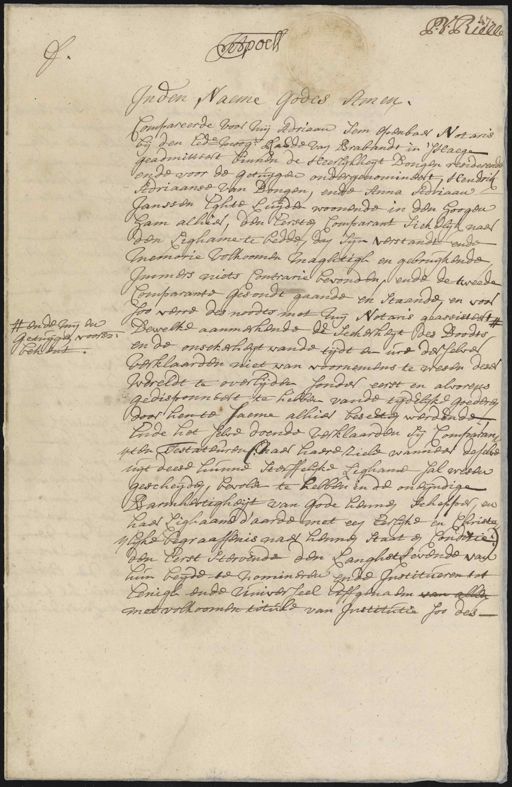 Inden Naeme Godes Amen.
Compareerde voor my Adriaan Sem openbaer Notaris
by den Ede: Raedde van Brabandt in 'sHaege
geadmitteert binnen de Heerlykheyt Dongen resideerende
ende voor de getuygen ondergenomineert, Hendrik
Adriaanse van Dongen, ende Anna Adriaan
Janssen Echte Luyden woonende in den
Ham alhier, den Eersten Comparant Sieckelijk naer
den Lighame te bedde, dog Syn verstandt ende
Memorie volkoomen Maghtigh en gebruykende
Immers niets Contrarie bevonden, ende de tweede
Comparante gesondt gaande en Staande, en voor
Soo veele des noodts met my Notaris geassisteert #
# ende my en
Getuygen voorn:
bekent.
Dewelke aanmerkende de Seekerheyt des Doodts
en de onseekerheyt van de tydt en ure der selver
verklaarden niet van voornemens te weesen deese
Wereldt te overlyden sonder eerst en alvorens
gedisponeert te hebben van de tydelyke goederen
door hen te Saeme alhier beseten werdende
Ende het selve doende verklaarden sy Comparan-
ten Testateuren haer haere Ziele wanneer de selve
uyt deese hunne Sterffelyke Lighame Sal weesen
gescheyden, bevolen te hebben in de oneyndige
Barmhertigheyt van Godt hennen Schepper, en
haer Lighaam d'aarde met een Eerlyke en Christe-
lyke begraaffenis naer hennen Staat en Conditie
den Eerst Stervende den Langhst Levende van
hun beyde te nomineren ende Institueren tot
Eenige ende Universeel Erffgenaem van allen
met volkoomen tytule van Institutie Soo des